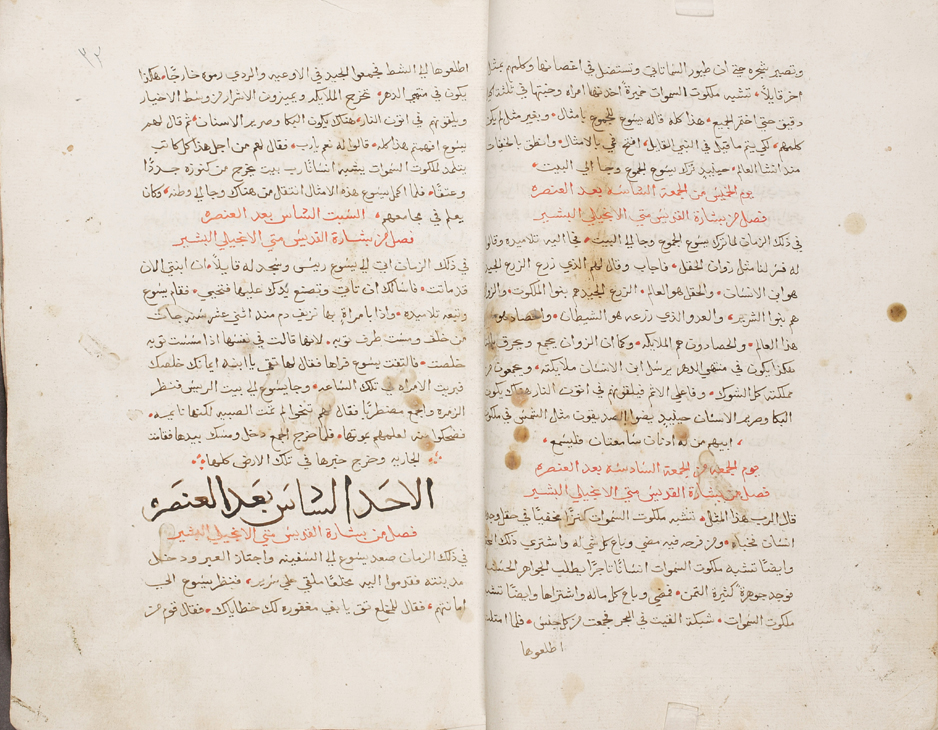 وتصير شجره حتي ان طيور السما تاتي وتستضل في اغصانها وكلمهم بمثل
اخر قايلاً تشبه ملكوت السموات خميرة اخذتها امراه وخبتها في ثلثة
دقيق حتي اختمر الجميع هذا كله قاله يسوع للجموع بامثال وبغير مثل لم يكن
كلمهم لكي يتم ما قيل في النبي القايل افتح في بالامثال وانطق بالخفيات
منذ انشا العالم حينيذ ترك يسوع الجموع وجا الي البيت
يوم الخميس من الجمعة السادسه بعد العنصره
فصل من بشارة القديس متي الانجيلي البشير
في ذلك الزمان لما ترك يسوع الجموع وجا الي البيت فجا اليه تلاميذه وقالو
له فسر لنا مثل زوان الحقل فاجاب وقال لهم الذي زرع الزرع الجيد
هو ابن الانسان والحقل هو العالم الزرع الجيد هم بنوا الملكوت والزوان
هم بنوا الشرير والعدو الذي زرعه هو الشيطان والحصاد هو
هذا العالم والحصادون هم الملايكه وكما ان الزوان يجمع ويحرق بالنار
هكذا يكون في منتهي الدهر يرسل ابن الانسان ملايكته ويجمعون من
مملكته كل الشوك وفاعلي الاثم فيلقونهم في اتون النار هناك يكون
البكا وصرير الاسنان حينيذ يضوا الصديقون مثل الشمس في ملكوت
ابيهم من له اذنان سامعتان فليسمع
يوم الجمعه من الجمعة السادسه بعد العنصره
فصل من بشارة القديس متي الانجيلي البشير
قال الرب هذا المثل تشبه ملكوت السموات كنزاً مخفياً في حقل وجده
انسان فخباه ومن فرحه فيه مضي وباع كل شي له واشتري ذلك الحقل
وايضاً تشبه ملكوت السموات انساناً تاجراً يطلب الجواهر الحسنه
فوجد جوهرة كثيرة الثمن فمضي وباع كل ماله واشتراها وايضاً تشبه
ملكوت السموات شبكة القيت في البحر فجمعت من كل جنس فلما امتلت
اطلعوها
٣٢
اطلعوها الي الشط فجمعوا الجيد في الاوعيه والردي رموه خارجاً هكذا
يكون في منتهي الدهر تخرج الملايكه ويميزون الاشرار من وسط الاخيار
ويلقونهم في اتون النار هناك يكون البكا وصرير الاسنان ثم قال لهم
يسوع افهمتم هذا كله قالوا له نعم يا رب فقال لهم من اجل هذا كل كاتب
يتلمذ لملكوت السموات يشبه انساناً رب بيت يخرج من كنوزه جدداً
وعتقاً فلما اكمل يسوع هذه الامثال انتقل من هناك وجا الي وطنه وكان
يعلم في مجامعهم السبت السادس بعد العنصره
فصل من بشارة القديس متي الانجيلي البشير
في ذلك الزمان اتي الي يسوع رييس وسجد له قايلاً ان ابنتي الان
قد ماتت فاسالك ان تاتي وتضع يدك عليها فتحيي فقام يسوع
وتبعه تلاميذه واذا بامراة بها نزيف دم منذ اثني عشر سنه جات
من خلف ومست طرف ثوبه لانها قالت في نفسها اذا مسست ثوبه
خلصت فالتفت يسوع فراها فقال لها ثقي يا ابنه ايمانك خلصك
فبريت الامراه في تلك الساعه وجا يسوع الي بيت الرييس فنظر
الزمره والجمع مضطرباً فقال لهم تنحوا لم تمت الصبيه لكنها نايمه
فضحكوا منه لعلمهم بموتها فلما خرج الجمع دخل ومسك بيدها فقامت
الجاريه وخرج خبرها في تلك الارض كلها
الاحد السادس بعد العنصره
فصل من بشارة القديس متي الانجيلي البشير
في ذلك الزمان صعد يسوع الي السفينه واجتاز العبر ودخل
مدينته فقدموا اليه مخلعاً ملقي علي سرير فنظر يسوع الي
امانتهم فقال للمخلع ثق يا بني مغفوره لك خطاياك فقال قوم من